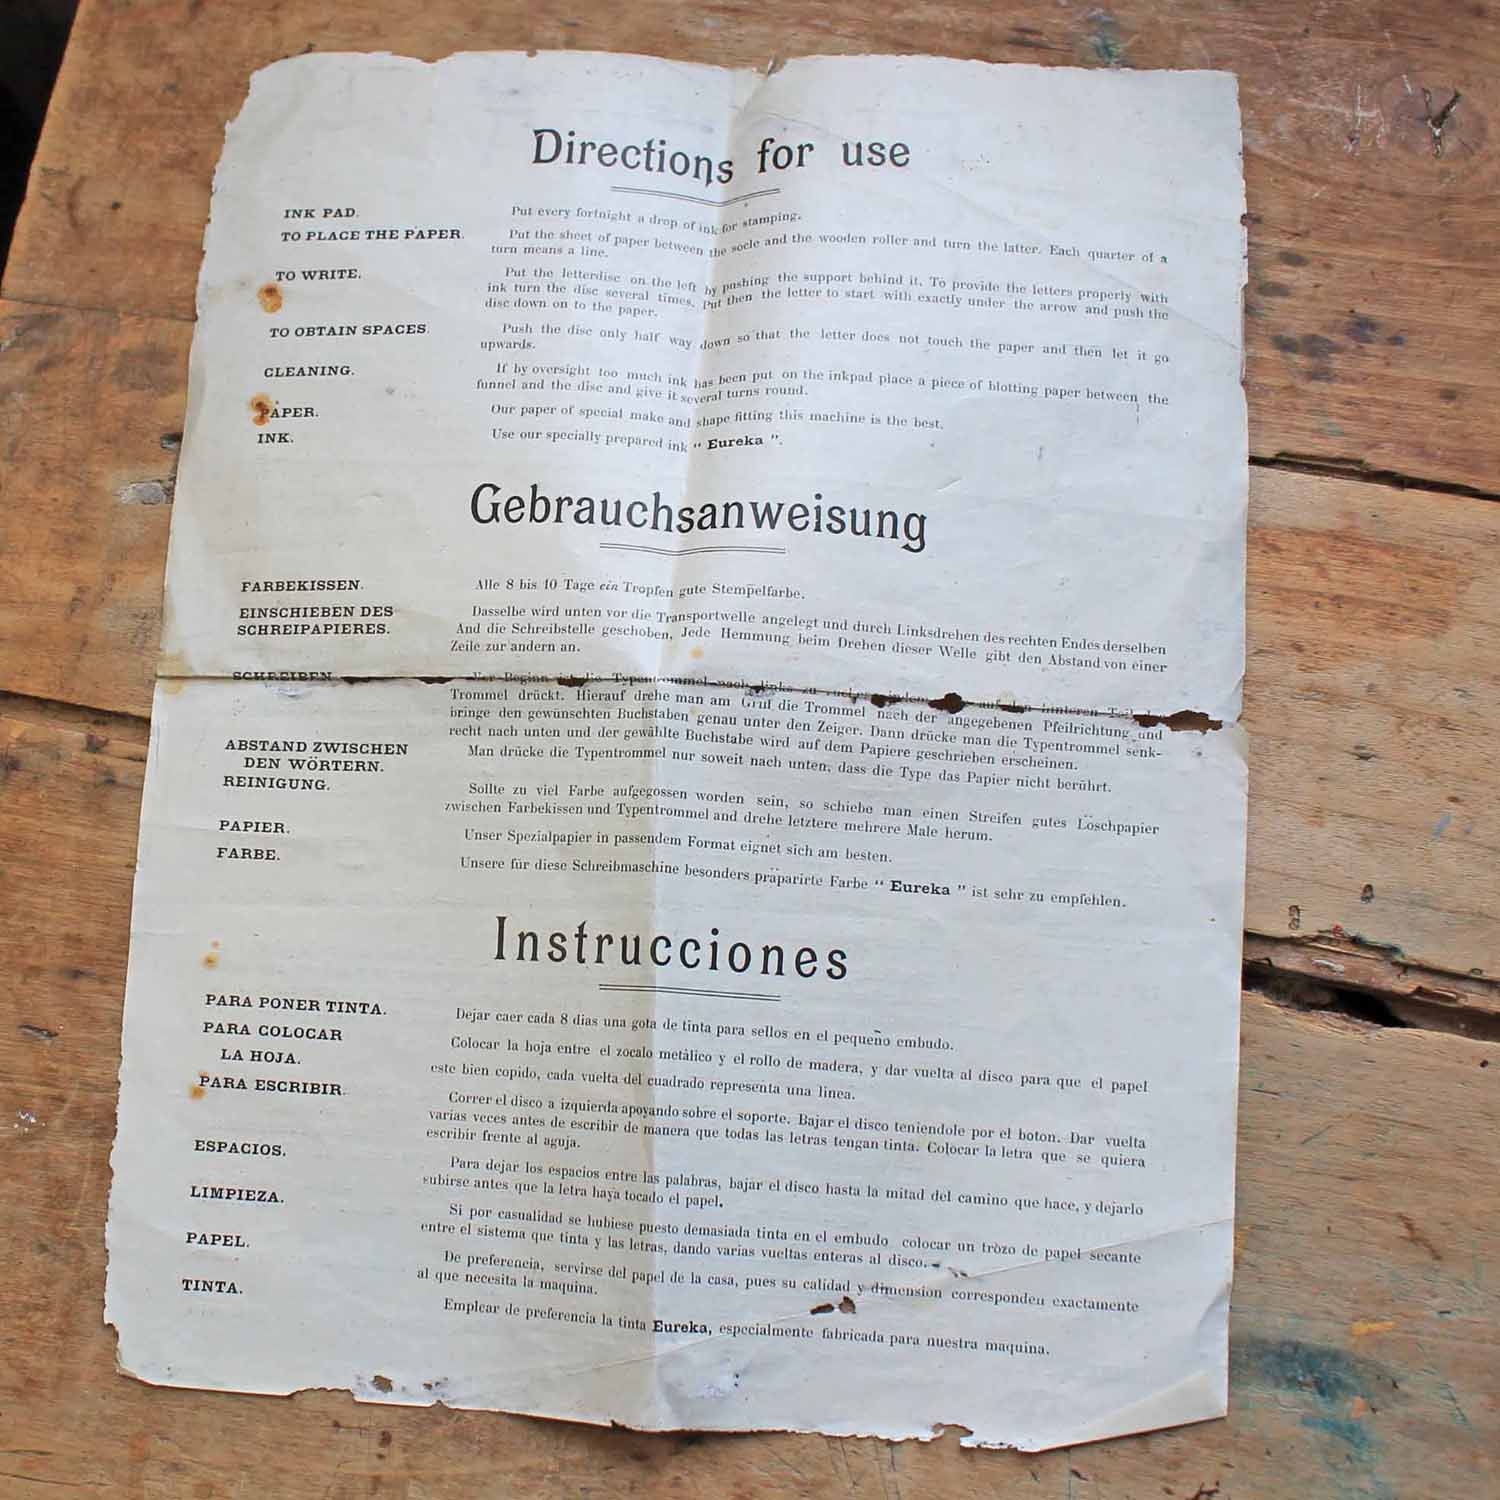 Directions for use
INK PAD. Put every fortnight a drop of ink for stamping.
TO PLACE THE PAPER. Put the sheet of paper between the socle and the wooden roller and turn the latter. Each quarter of a
turn means a line.
TO WRITE. Put the letterdisc on the left by pushing the support behind it. To provide the letters properly with
ink turn the disc several times. Put then the letter to start with exactly under the arrow and push the
disc down on to the paper.
TO OBTAIN SPACES. Push the disc only half way down so that the letter does not touch the paper and then let it go
upwards.
CLEANING. If by oversight too much ink has been put on the inkpad place a piece of blotting paper between the
funnel and the disc and give it several turns round.
PAPER. Our paper of special make and shape fitting this machine is the best.
INK. Use our specially prepared ink “ Eureka ”.
Gebrauchsanweisung
FARBEKISSEN. Alle 8 bis 10 Tage ein Tropfen gute Stempelfarbe.
EINSCHIEBEN DES
SCHREIPAPIERES. Dasselbe wird unten vor die Transportwelle angelegt und durch Linksdrehen des rechten Endes derselben
And die Schreibstelle geschoben, Jede Hemmung beim Drehen dieser Welle gibt den Abstand von einer
Zeile zur andern an.
SCHREIBEN Vor Beginn ist die Typentrommel nach links zu auf den hinteren Teil
Trommel drückt. Hierauf drehe man am Gruf die Trommel nach der angegebenen Pfeilrichtung und
bringe den gewünschten Buchstaben genau unter den Zeiger. Dann drücke man die Typentrommel senk-
recht nach unten und der gewählte Buchstabe wird auf dem Papiere geschrieben erscheinen.
ABSTAND ZWISCHEN
DEN WÖRTERN. Man drücke die Typentrommel nur soweit nach unten, dass die Type das Papier nicht berührt.
REINIGUNG. Sollte zu viel Farbe aufgegossen worden sein, so schiebe man einen Streifen gutes Löschpapier
zwischen Farbekissen und Typentrommel and drehe letztere mehrere Male herum.
PAPIER. Unser Spezialpapier in passendem Format eignet sich am besten.
FARBE. Unsere für diese Schreibmaschine besonders präparirte Farbe “ Eureka ” ist sehr zu empfehlen.
Instrucciones
PARA PONER TINTA. Dejar caer cada 8 dias una gota de tinta para sellos en el pequeño embudo.
PARA COLOCAR
LA HOJA. Colocar la hoja entre el zocalo metálico y el rollo de madera, y dar vuelta al disco para que el papel
este bien copido, cada vuelta del cuadrado representa una linea.
PARA ESCRIBIR. Correr el disco a izquierda apoyando sobre el soporte. Bajar el disco teniendole por el boton. Dar vuelta
varias veces antes de escribir de manera que todas las letras tengan tinta. Colocar la letra que se quiera
escribir frente al aguja.
ESPACIOS. Para dejar los espacios entre las palabras, bajar el disco hasta la mitad del camino que hace, y dejarlo
subirse antes que la letra haya tocado el papel.
LIMPIEZA. Si por casualidad se hubiese puesto demasiada tinta en el embudo colocar un trozo de papel secante
entre el sistema que tinta y las letras, dando varias vueltas enteras al disco.
PAPEL. De preferencia, servirse del papel de la casa, pues su calidad y dimension corresponden exactamente
al que necesita la maquina.
TINTA. Emplear de preferencia la tinta Eureka, especialmente fabricada para nuestra maquina.